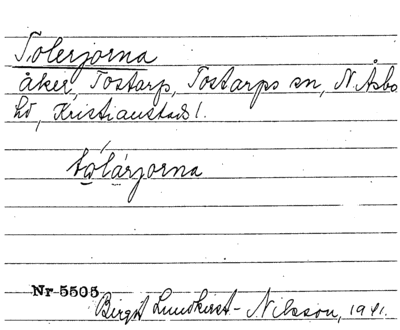 Tolerjorna
åker, Tostarp, Tostarps sn, N. Åsbo
hd, Kristianstads l.
tωlárjorna
Nr 5505
Birgit Lundkvist-Nilsson, 1941.